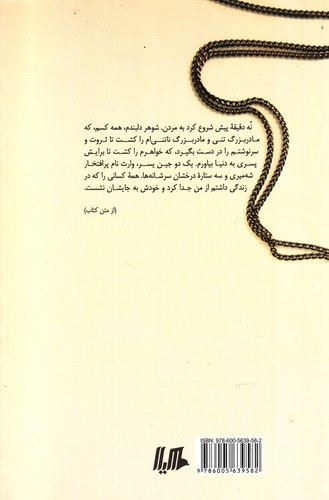 نُه دقیقهٔ پیش شروع کرد به مردن. شوهر دلبندم، همه کسم، که
مادربزرگ تنی و مادربزرگ ناتنی‌ام را کشت تا ثروت و
سرنوشتم را در دست بگیرد، که خواهرم را کشت تا برایش
پسری به دنیا بیاورم. یک دو جین پسر، وارث نام پرافتخار
شه‌میری و سه ستارهٔ درخشان سرشانه‌ها. همهٔ کسانی را که در
زندگی داشتم از من جدا کرد و خودش به جایشان نشست.
(از متن کتاب)
ISBN: 978-600-5639-58-2
9 786005 639582
هیلا